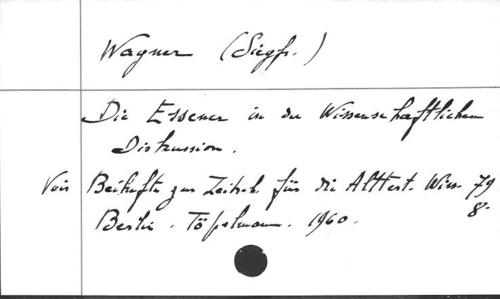 Wagner (Siegfr.)
Die Essener in der Wissenschaftlichen
Diskussion.
Voir Beihefte zur Zeitsch. für die Alttest. Wiss. 79
Berlin. Töpelmann. 1960. 8.